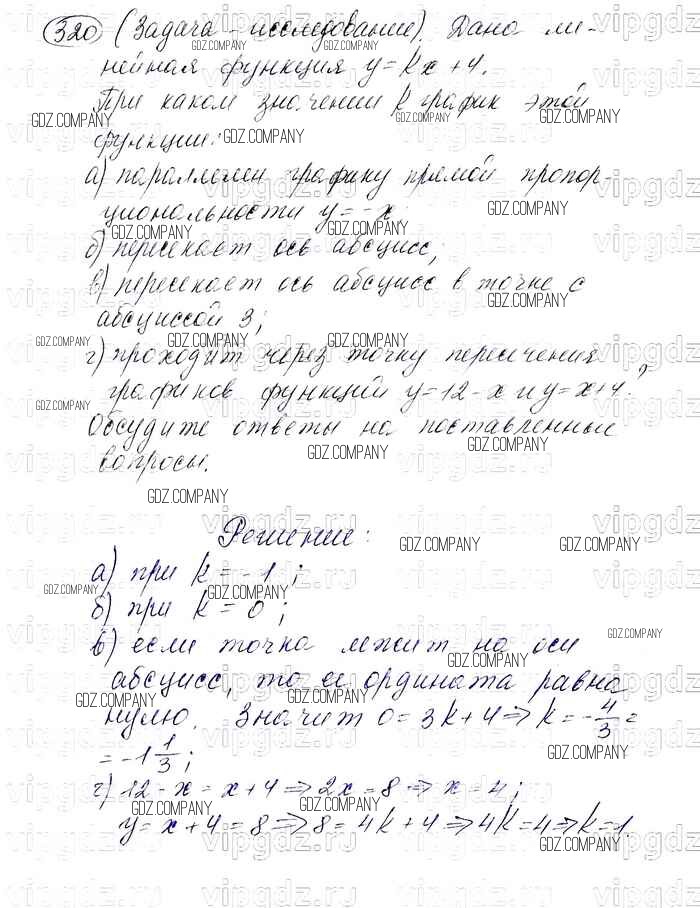 320 (Задача - исследование). Дана ли-
нейная функция y = kx + 4.
При каком значении k график этой
функции:
а) параллелен графику прямой пропор-
циональности y = -x
б) пересекает ось абсцисс;
в) пересекает ось абсцисс в точке с
абсциссой 3;
г) проходит через точку пересечения
графиков функций y = 12 - x и y = x + 4.
Обсудите ответы на поставленные
вопросы.
Решение:
а) при k = -1;
б) при k = 0;
в) если точка лежит на оси
абсцисс, то её ордината равна
нулю. Значит 0 = 3k + 4 ⇒ k = -4/3 =
= -1 1/3;
г) 12 - x = x + 4 ⇒ 2x = 8 ⇒ x = 4;
y = x + 4 = 8 ⇒ 8 = 4k + 4 ⇒ 4k = 4 ⇒ k = 1.
GDZ.COMPANY
vipgdz.ru